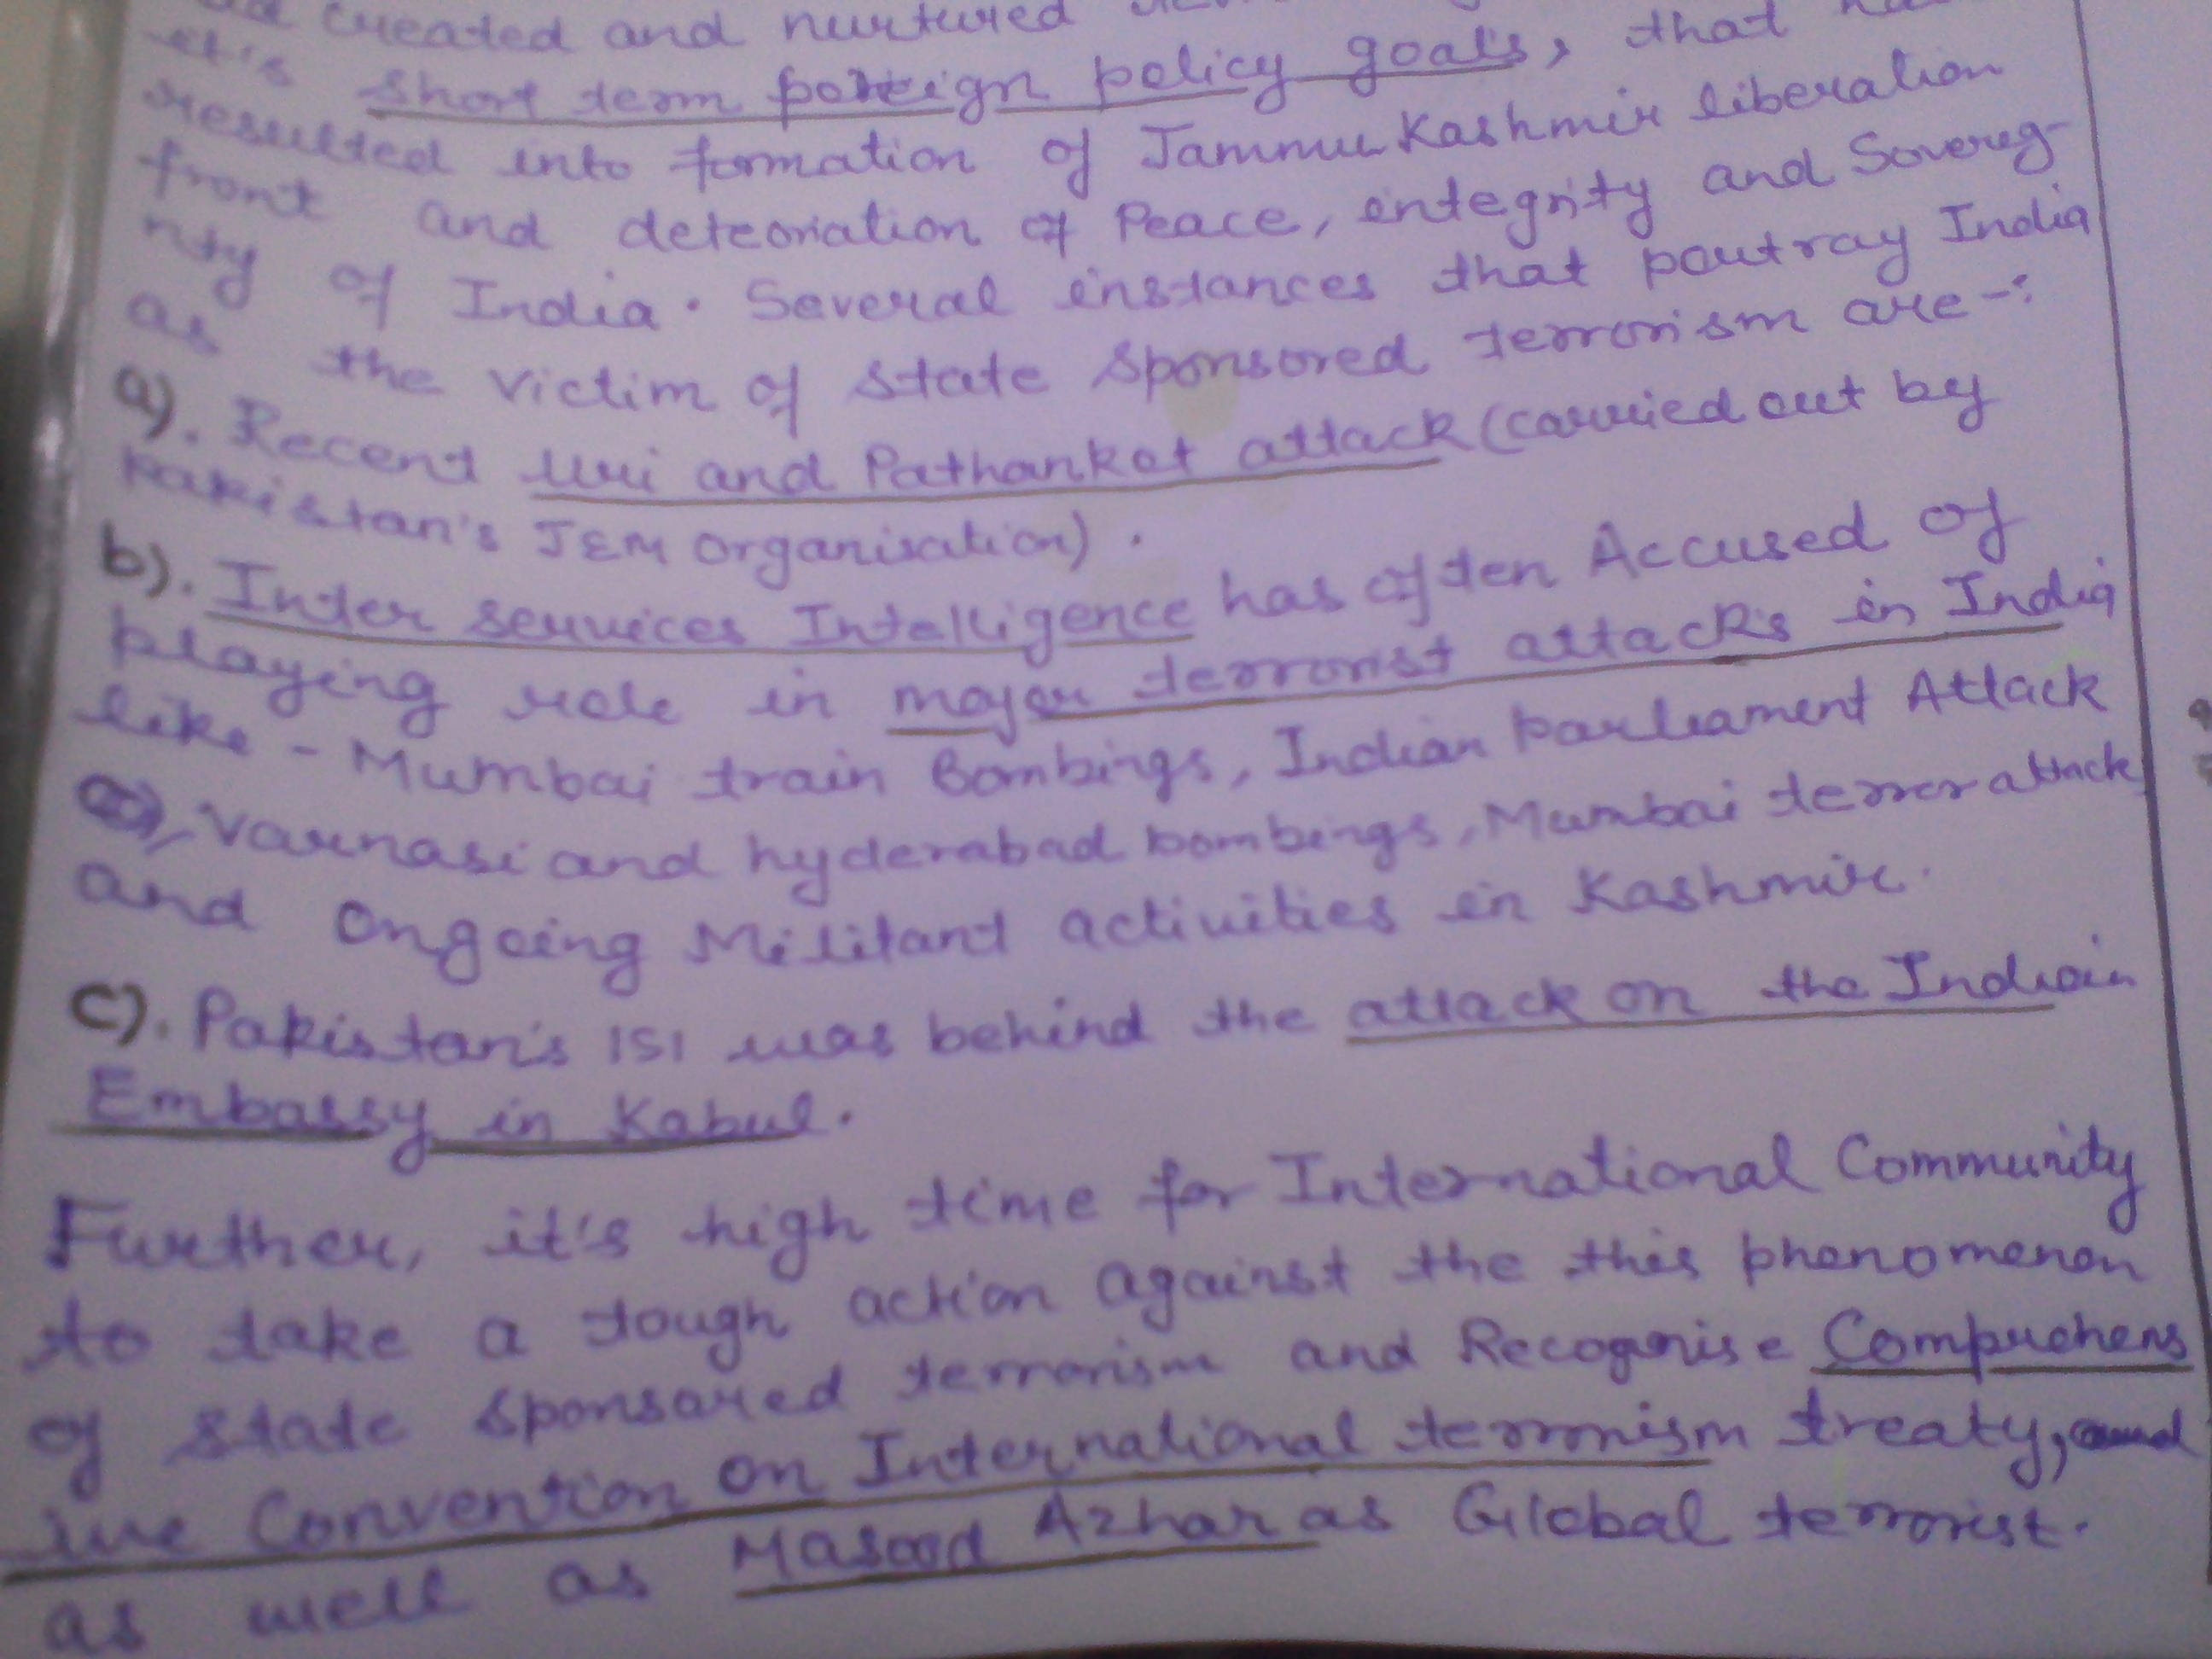 created and nurtured
it's short term foreign policy goals, that
resulted into formation of Jammu Kashmir liberation
front and deteoriation of Peace, integrity and Sovereg-
nty of India. Several instances that poutray India
as the victim of state sponsored terrorism are -:
a). Recent Uri and Pathankot attack (carried out by
Pakistan's JEM organisation).
b). Inter services Intelligence has often Accused of
playing role in major terrorist attacks in India
like - Mumbai train Bombings, Indian Parliament Attack
Varnasi and hyderabad bombings, Mumbai terror attack,
and ongoing Militant activities in Kashmir.
c). Pakistan's ISI was behind the attack on the Indian
Embassy in Kabul.
Further, it's high time for International Community
to take a tough action against the this phenomenon
of state sponsared terrorism and Recognise Comprehens
ive Convention on International terrorism treaty, and
as well as Masood Azhar as Global terrorist.